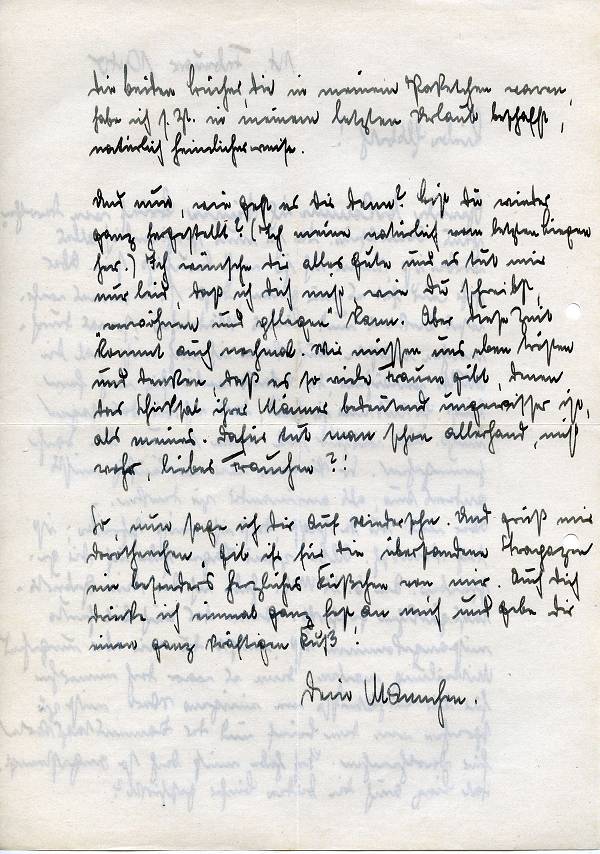 die beiden Bücher, die in meinem Paketchen waren,
habe ich s. Zt. in meinem letzten Urlaub beschafft,
natürlich heimlicherweise.
Und nun, wie geht es dir denn? Bist du wieder
ganz hergestellt? (Ich meine natürlich vom letzten Liegen
her.) Ich wünsche dir alles Gute und es tut mir
nur leid, daß ich dich nicht, wie du schreibst,
"verwöhnen und pflegen" kann. Aber diese Zeit
kommt auch nochmal. Wir müssen uns eben trösten
und denken, daß es so viele Frauen gibt, denen
das Schicksal ihrer Männer bedeutend ungewisser ist,
als meines. Dafür tut man schon allerhand, nicht
wahr, liebes Frauchen?!
So, nun sage ich dir auf wiedersehn. Und grüß mir
Dorotheechen, gib ihr für die überstandenen Strapazen
ein besonders herzliches Küßchen von mir. Auch dich
drücke ich einmal ganz fest an mich und gebe dir
einen ganz kräftigen Kuß!
Dein Männchen.